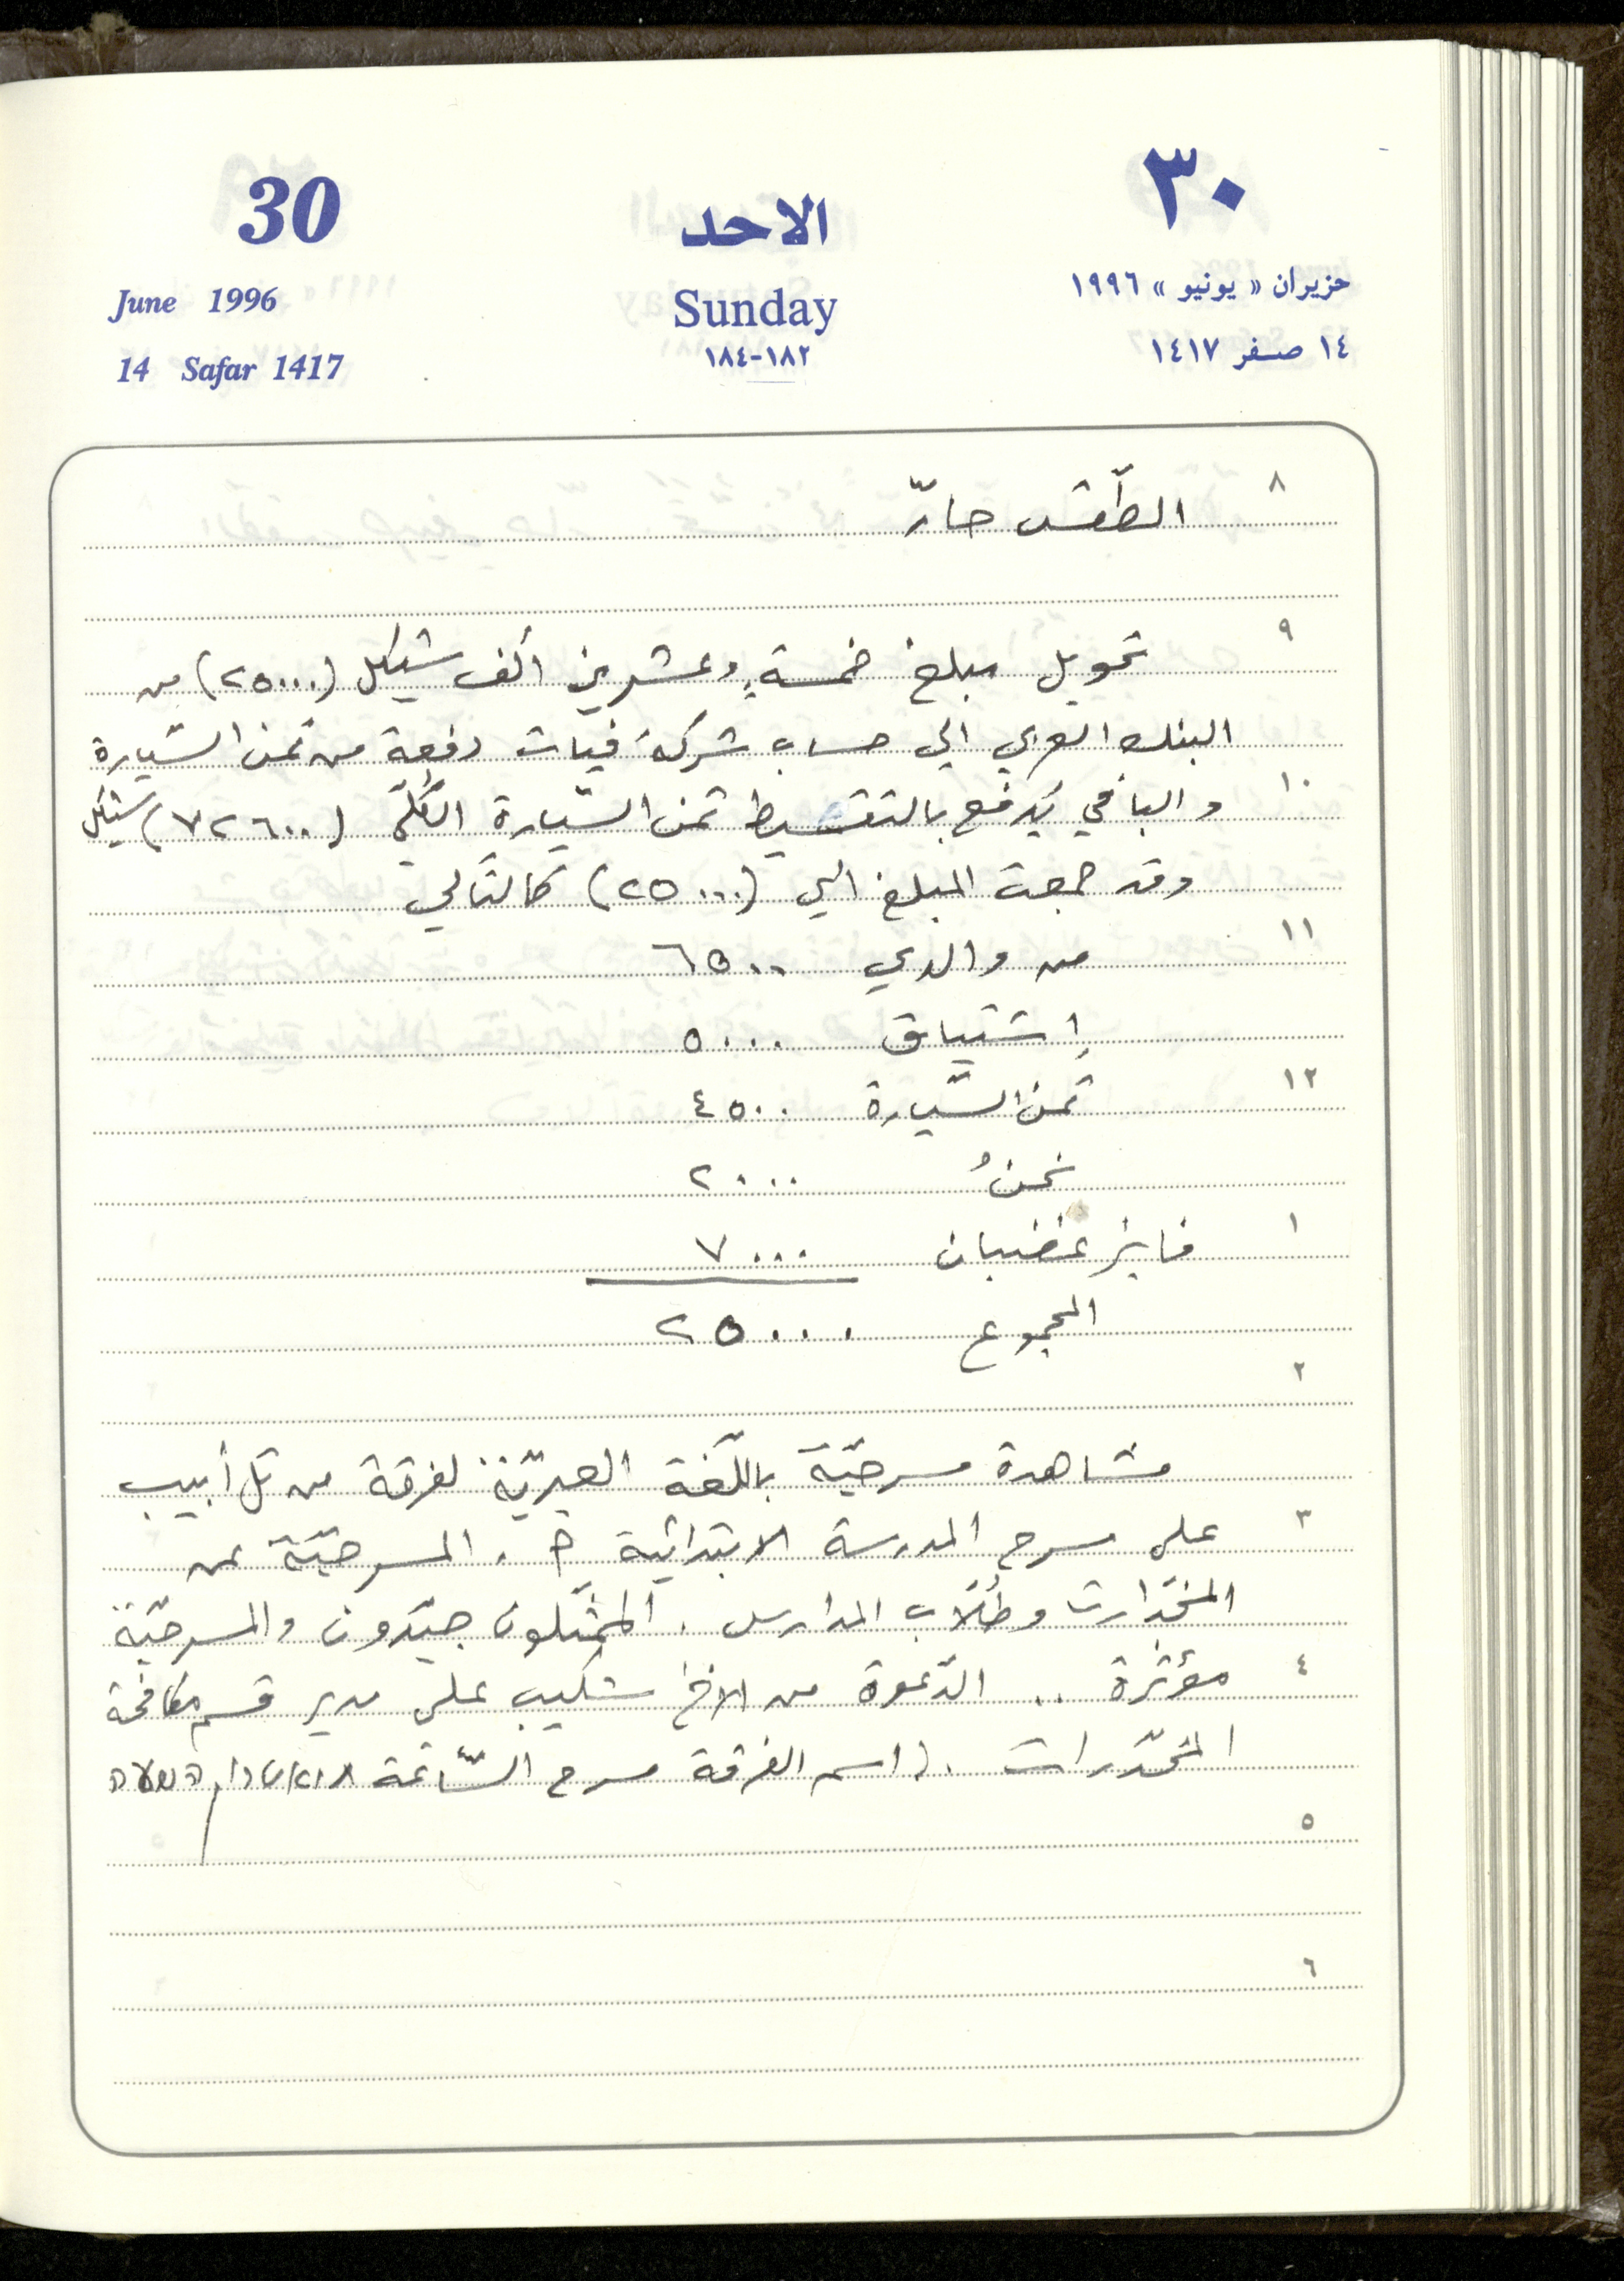 30
الاحد
٣٠
June 1996
Sunday
حزيران « يونيو » ١٩٩٦
14 Safar 1417
١٨٢-١٨٤
١٤ صفر ١٤١٧
٨
الطّقس حارّ
٩
تحويل مبلغ خمسةٍ وعشرين ألف شيكل (٢٥٠٠٠) من
البنك العربي الى حساب شركة فيات دفعة من ثمن السّيارة
١٠
والباقي يُدفع بالتقسيط ثمن السّيارة الكُلّي (٧٢٦٠٠) شيكل
وقد جمعت المبلغ الى (٢٥٠٠٠) كالتالي
١١
من والدي ٦٥٠٠
إشتياق ٥٠٠٠
١٢
ثمن السّيارة ٤٥٠٠
نحنُ ٢٠٠٠
١
فايز غضبان ٧٠٠٠
المجموع ٢٥٠٠٠
٢
مشاهدة مسرحيّة باللّغة العبريّة لفرقة من تل أبيب
٣
على مسرح المدرسة الابتدائية . المسرحيّة عن
المخدّرات وطُلّاب المدارس . الممّثلون جيّدون والمسرحيّة
٤
مؤثّرة .. الدّعوة من الاخ شكيب علي مدير قسم مكافحة
المخدّرات . (اسم الفرقة مسرح السّاعة תיאטרון השעה
٥
٦